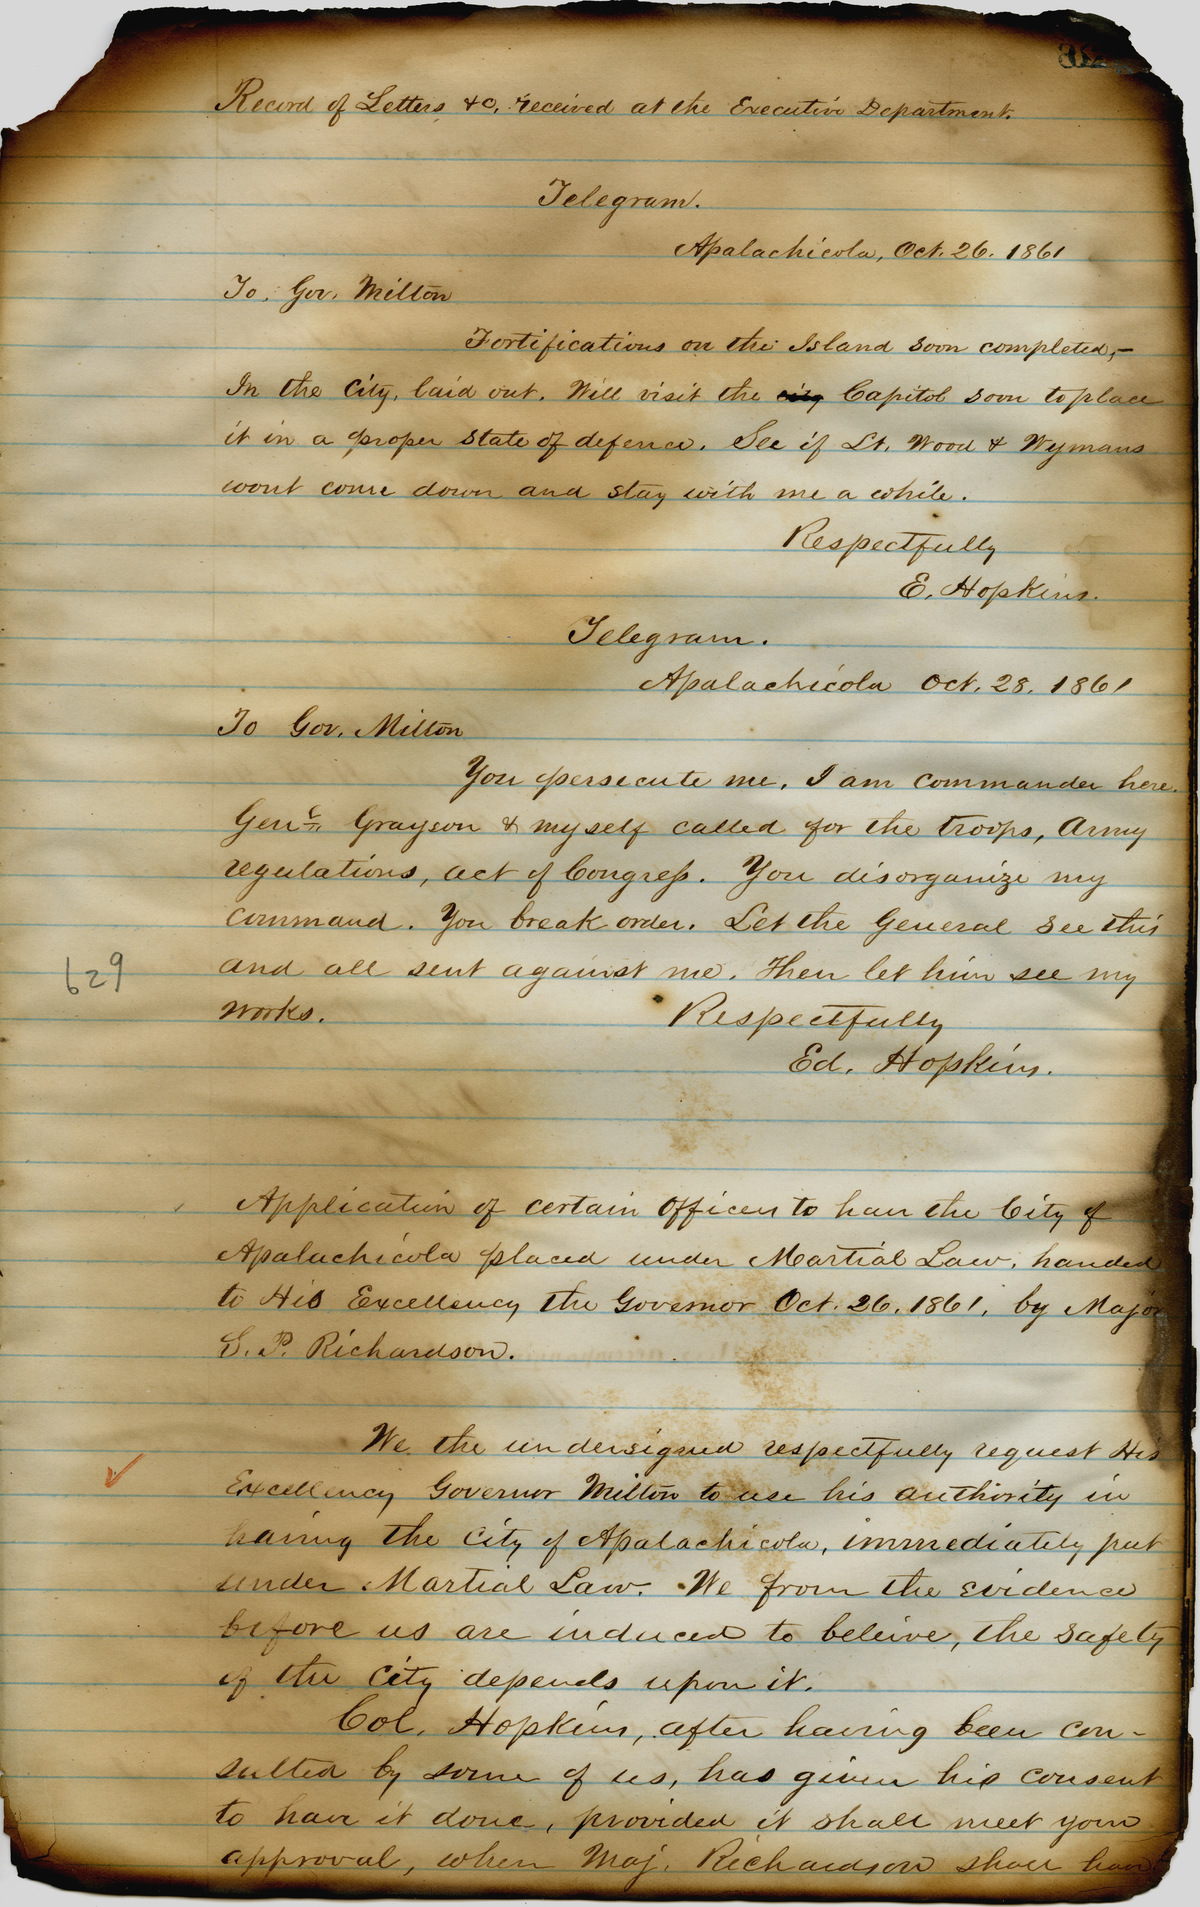 Record of Letters &c, received at the Executive Department.
Telegram.
Apalachicola, Oct. 26. 1861
To, Gov. Milton
Fortifications on the Island soon completed,—
In the City, laid out. Will visit the city Capitol soon to place
it in a proper state of defence. See if Lt. Wood & Wymans
wont come down and stay with me a while.
Respectfully
E. Hopkins.
Telegram.
Apalachicola Oct. 28. 1861
To Gov. Milton
You persecute me. I am commander here.
Genl. Grayson & myself called for the troops, Army
regulations, act of Congress. You disorganize my
command. You break order. Let the General see this
and all sent against me. Then let him see my
629
works.
Respectfully
Ed. Hopkins.
Application of certain Officers to have the City of
Apalachicola placed under Martial Law, handed
to His Excellency the Governor Oct. 26. 1861, by Major
S. P. Richardson.
We the undersigned respectfully request His
Excellency Governor Milton to use his authority in
having the City of Apalachicola, immediately put
under Martial Law. We from the evidence
before us are induced to beleive, the safety
of the City depends upon it.
Col. Hopkins, after having been con-
sulted by some of us, has given his consent
to have it done, provided it shall meet your
approval, when Maj. Richardson shall have